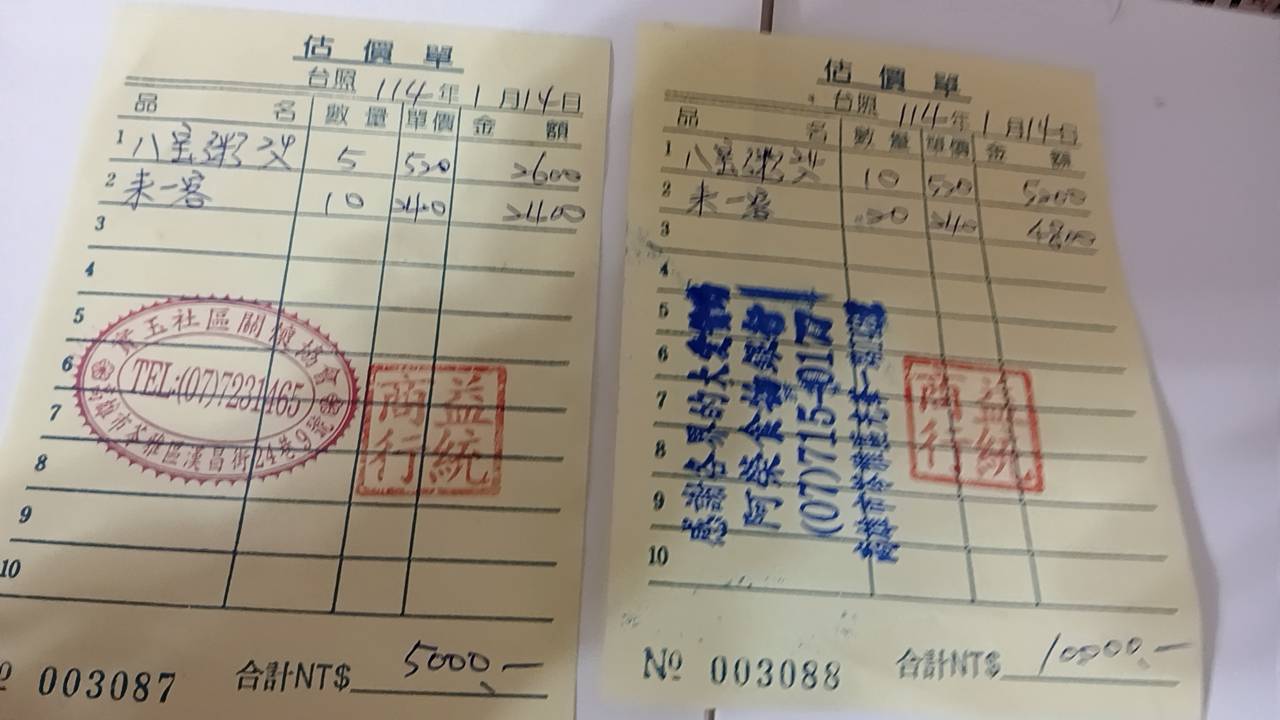 估價單
台照 114年1月14日
品名 數量 單價 金額
1 八宝粥 5 520 2600
2 來一客 10 240 2400
3
4
5
6
7
8
9
10
社區關懷協會
TEL:(07)7231465
高雄市苓雅區漢昌街24巷9號
益統商行
№ 003087 合計NT$ 5000.-
估價單
台照 114年1月14日
品名 數量 單價 金額
1 八宝粥 10 520 5200
2 來一客 20 240 4800
3
4
5
6
7
8
9
10
感謝各界的大愛
阿榮食物銀行
(07)715-0177
高雄市苓雅區
益統商行
№ 003088 合計NT$ 10000.-